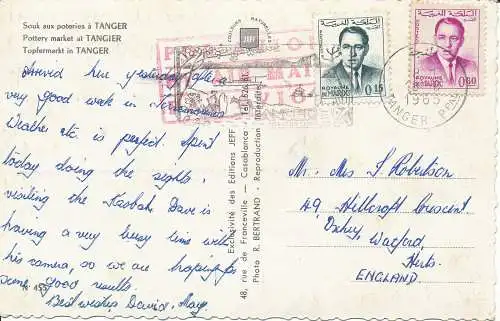 Souk aux poteries à TANGER
Pottery market at TANGIER
Topfermarkt in TANGER
Arrived here yesterday after
very good week in
Weather etc. is perfect. Spent
today doing the sights,
visiting the Kasbah. Dave is
having a very busy time with
his camera, so we are hoping for
some good results.
Best wishes, David, Mary.
N° 455
COULEURS NATURELLES
JEFF
Exclusivité des Editions JEFF
48, rue de Franceville — Casablanca - Tél.
Photo R. BERTRAND - Reproduction interdite
ROYAUME DU MAROC
0,15
ROYAUME DU MAROC
0,60
1965
TANGER
Mr. Mrs J. Robertson
49 Hillcroft Crescent
Oxhey, Watford
Herts.
ENGLAND